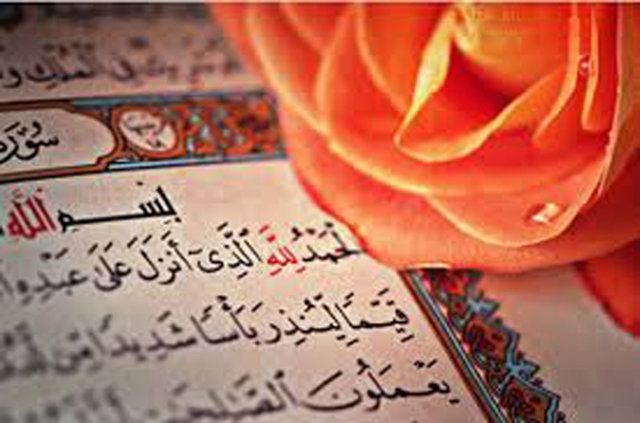 فِى ٱلْمُلْكِ
سُورَة
ترتيبها ١٨
بِسْمِ ٱللَّهِ
ٱلْحَمْدُ لِلَّهِ ٱلَّذِىٓ أَنزَلَ عَلَىٰ عَبْدِهِ
قَيِّمًا لِّيُنذِرَ بَأْسًا شَدِيدًا مِّن
يَعْمَلُونَ ٱلصَّٰلِحَٰتِ